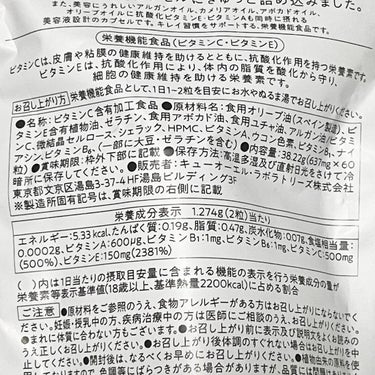 また、美容にうれしいアルガンオイル、カメリアオイル、アボカドオイル、
オリーブオイルに抗酸化ビタミンE・ビタミンAも同時に摂れる
美容液設計のカプセルです。キレイ習慣をサポートする、栄養機能食品です。
栄養機能食品(ビタミンC・ビタミンE)
ビタミンCは、皮膚や粘膜の健康維持を助けるとともに、抗酸化作用を持つ栄養素です。
ビタミンEは、抗酸化作用により、体内の脂質を酸化から守り、
細胞の健康維持を助ける栄養素です。
お召し上がり方 栄養機能食品として、1日1〜2粒を目安に水やぬるま湯でお召し上がりください。
●名称:ビタミンC含有加工食品 ●原材料名:食用オリーブ油(スペイン製造)、ビタ
ミンE含有植物油、ゼラチン、食用アボカド油、食用ユチャ油、アルガン油/ビタミ
ンC、微結晶セルロース、シェラック、HPMC、ビタミンA、ウコン色素、ビタミンB₁、ナイ
アシン、ビタミンB₆、(一部に大豆・ゼラチンを含む) ●内容量:38.22g(637mg×60
粒) ●賞味期限:枠外下部に記載 ●保存方法:高温多湿及び直射日光をさけて冷
暗所に保存してください。 ●販売者:キューセー・ラボラトリーズ株式会社
東京都文京区湯島3-37-4HF湯島ビルディング3F
※製造所固有記号は、賞味期限の右側に記載
栄養成分表示 1.274g(2粒)当たり
エネルギー:5.33kcal、たんぱく質:0.19g、脂質:0.47g、炭水化物:007g、食塩相当量:
0.0002g、ビタミンA:600μg、ビタミンB₁:1mg、ビタミンB₆:1mg、ビタミンC:500mg
(500%)、ビタミンE:150mg(2381%)
( )内は1日当たりの摂取目安量に含まれる機能の表示を行う栄養成分の量が
栄養素等表示基準値(18歳以上、基準熱量2200kcal)に占める割合
ご注意 ●原材料をご参照のうえ、食物アレルギーがある方はお召し上がりにならないで
ください。●妊娠・授乳中の方、疾病治療中の方は医師にご相談のうえ、お召し上がりください。
●まれに体質に合わない方もございます。●お召し上がり前に表示及び説明文をよくお読みの
うえ正しくお召し上がりください。●お召し上がり後体調のすぐれない場合はお召し上がりを
●開封後は、なるべくお早めにお召し上がりください。●植物由来の原料を使
用しておりますので、色調等にばらつきがある場合があり